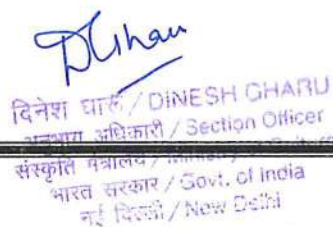 दिनेश घारू / DINESH GHARU
अनुभाग अधिकारी / Section Officer
संस्कृति मंत्रालय / Ministry of
भारत सरकार / Govt. of India
नई दिल्ली / New Delhi